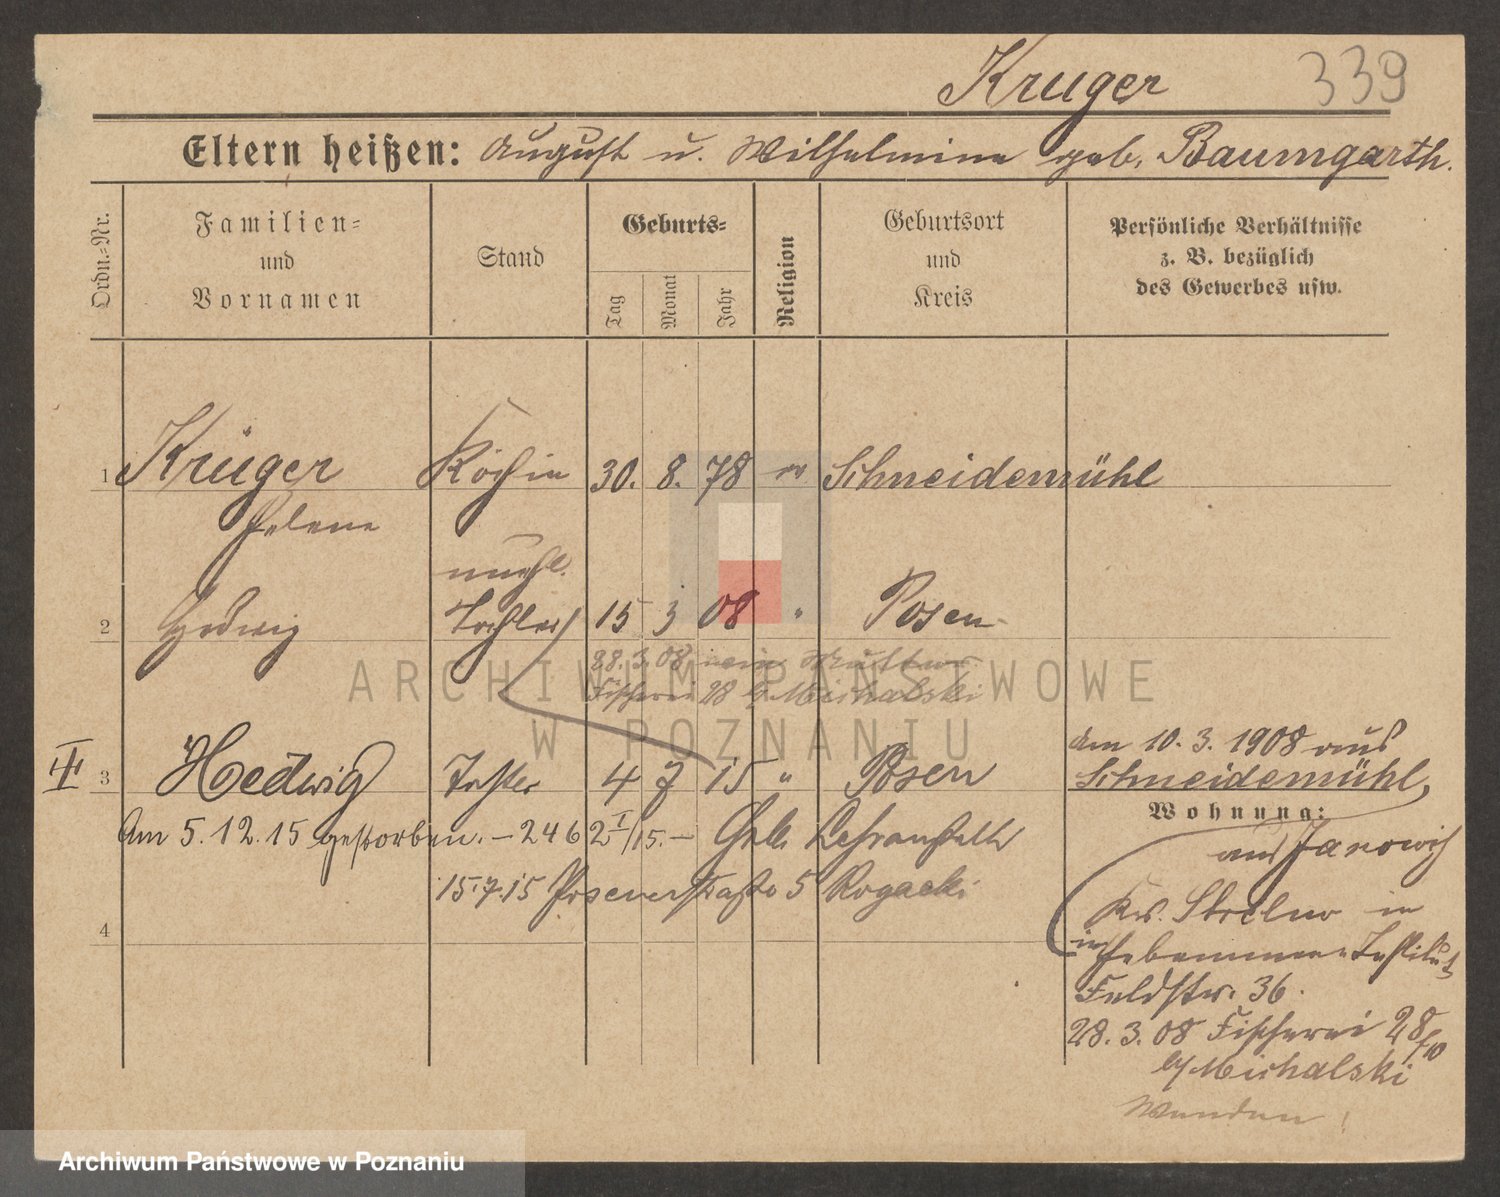 Krüger 339
Eltern heißen: August u. Wilhelmine geb. Baumgarth.
Ordn.-Nr.
Familien-
und
Vornamen
Stand
Geburts-
Tag
Monat
Jahr
Religion
Geburtsort
und
Kreis
Persönliche Verhältnisse
z. B. bezüglich
des Gewerbes usw.
1 Krüger Köchin 30. 8. 78 ev Schneidemühl
Helene
unehl.
2 Hedwig Tochter 15 3 08 " Posen
28. 3. 08 Mutter
Fischerei 28 b/ Michalski
ARCHIWUM PAŃSTWOWE
W POZNANIU
III 3 Hedwig Tochter 4 7 15 " Posen
am 10. 3. 1908 aus
Schneidemühl,
Wohnung:
Am 5. 12. 15 gestorben. – 2462 I/15. – Geb. Lehranstalt
aus Janowitz
15.7.15 Posenerstraße 5 Rogacki
4
Kr. Strelno in
in Hebammen Institut
Feldstr. 36.
28. 3. 08 Fischerei 28
b/ Michalski
Archiwum Państwowe w Poznaniu